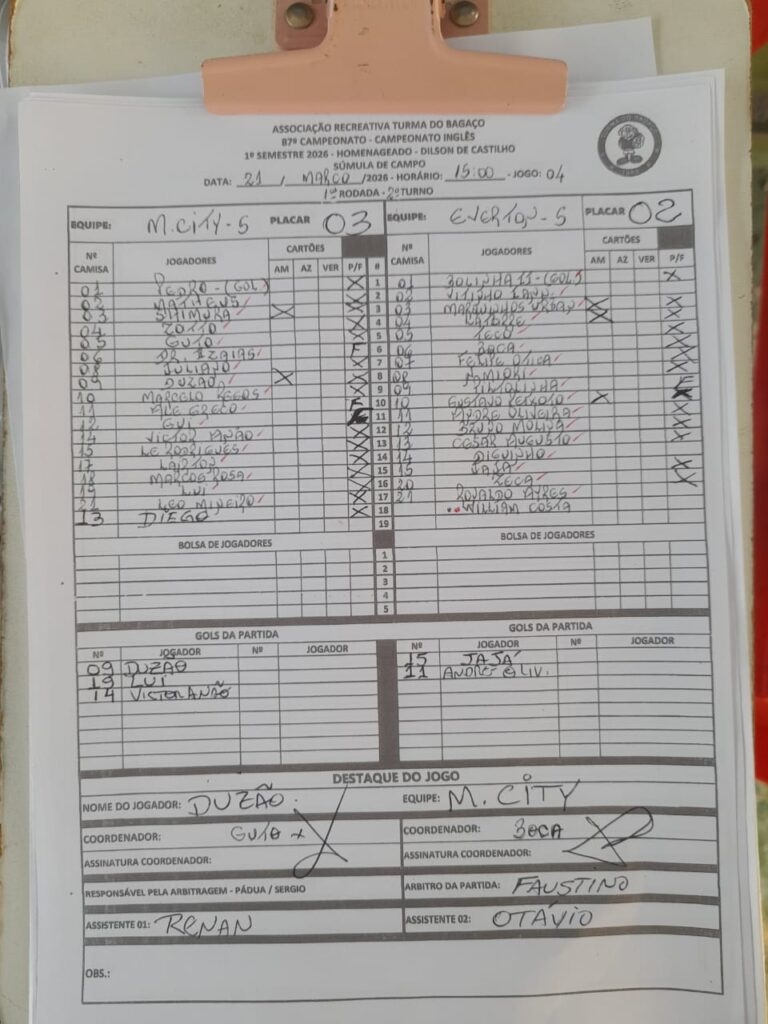 ASSOCIAÇÃO RECREATIVA TURMA DO BAGAÇO
87º CAMPEONATO - CAMPEONATO INGLÊS
1º SEMESTRE 2026 - HOMENAGEADO - DILSON DE CASTILHO
SÚMULA DE CAMPO
DATA: 21 / MARÇO /2026 - HORÁRIO: 15:00 - JOGO: 04
1ª RODADA - 2º TURNO
EQUIPE: M.CITY-S PLACAR 03 EQUIPE: EVERTON-S PLACAR 02
Nº CAMISA JOGADORES CARTÕES AM AZ VER P/F # Nº CAMISA JOGADORES CARTÕES AM AZ VER P/F
01 PEDRO-(GOL) X 1 01 BOLINHA JJ-(GOL) X
02 MATHEUS X 2 02 VITINHO
03 SHIMURA X X 3 03 MARQUINHOS X X
04 ZOTTO X 4 04 LATORRE X X
05 GUTO X 5 05 TECO X
06 DR. IZAIAS F 6 06 BOCA X
08 JULIANO X 7 07 FELIPE X
09 DUZÃO X X 8 08
10 MARCELO X 9 09
11 ALE GRECO F 10 10 GUSTAVO PEIXOTO X X
12 GUI 11 11 ANDRE OLIVEIRA X
14 VICTOR ANÃO X 12 12 BRUNO MOLINA X
15 LE RODRIGUES X 13 13 CESAR AUGUSTO X
17 X 14 14 DIGUINHO
18 MARCOS ROSA X 15 15 JAJA X
19 LUI X 16 20 ZECA X
21 LEO MINEIRO X 17 21 RONALDO AYRES
13 DIEGO X 18 WILLIAM COSTA
19
BOLSA DE JOGADORES BOLSA DE JOGADORES
1
2
3
4
5
GOLS DA PARTIDA GOLS DA PARTIDA
Nº JOGADOR Nº JOGADOR Nº JOGADOR Nº JOGADOR
09 DUZÃO 15 JAJÁ
19 LUI 11 ANDRE OLIV.
14 VICTOR ANÃO
DESTAQUE DO JOGO
NOME DO JOGADOR: DUZÃO. EQUIPE: M. CITY
COORDENADOR: GUTO COORDENADOR: BOCA
ASSINATURA COORDENADOR: ASSINATURA COORDENADOR:
RESPONSÁVEL PELA ARBITRAGEM - PÁDUA / SERGIO ARBITRO DA PARTIDA: FAUSTINO
ASSISTENTE 01: RENAN ASSISTENTE 02: OTÁVIO
OBS.: